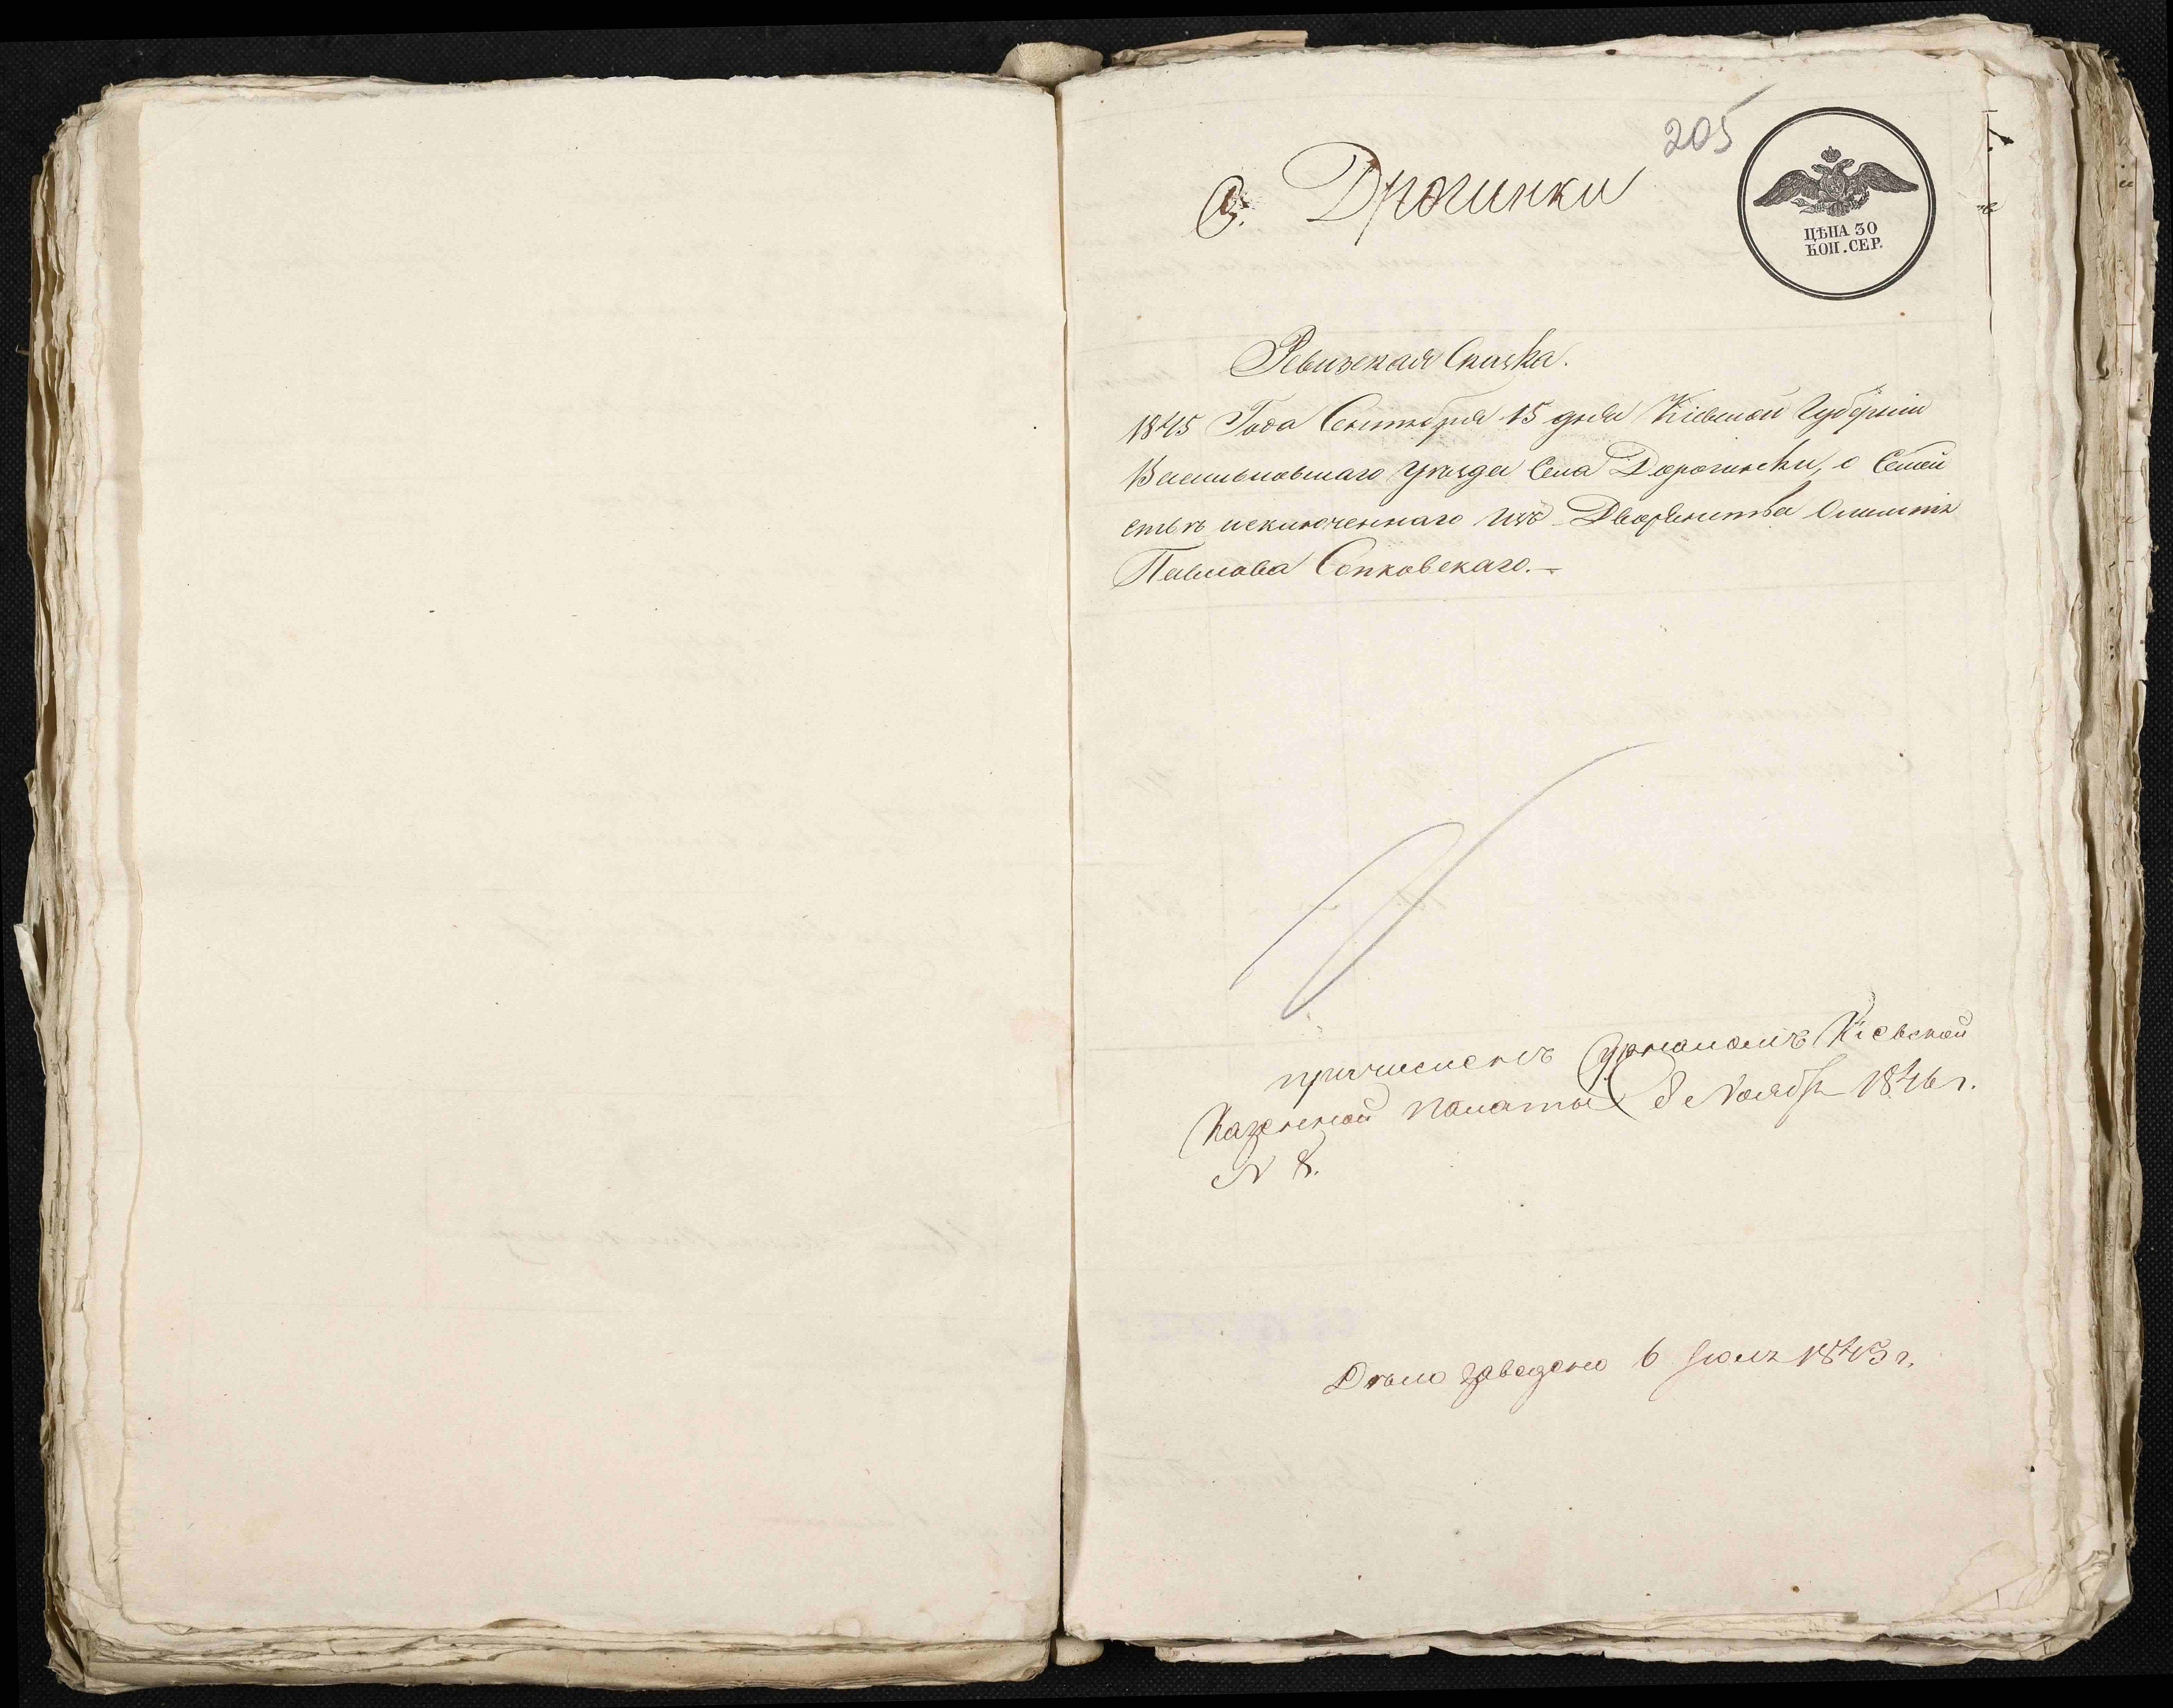 205
С. Дрогинки
ЦѢНА 30
КОП. СЕР.
Ревизская Сказка.
1845 Года Сентября 15 дня Кіевской Губерніи
Васильковскаго уѣзда Села Дорогинки, о Семей
ствѣ исключеннаго изъ Дворянства
Павлова Сопковскаго.
причисленъ Журналомъ Кіевской
Казенной Палаты 8 Ноября 1846 г.
N 8.
Дѣло заведено 6 Іюля 1843 г.